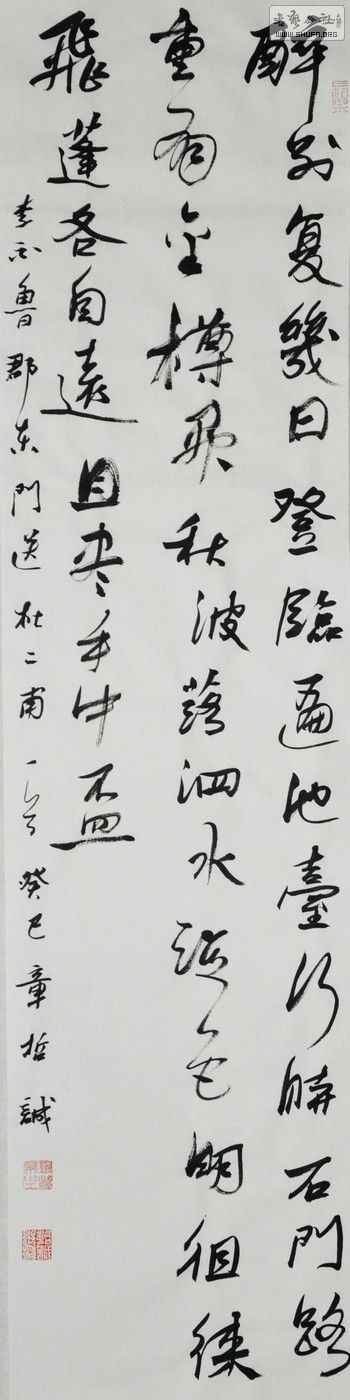 醉别复幾日登臨遍池臺何時石門路
重有金樽開秋波落泗水海色明徂徠
飛蓬各自遠且尽手中盃
李白魯郡東門送杜二甫一首癸巳章哲誠
书艺公社
WWW.SHUFA.ORG